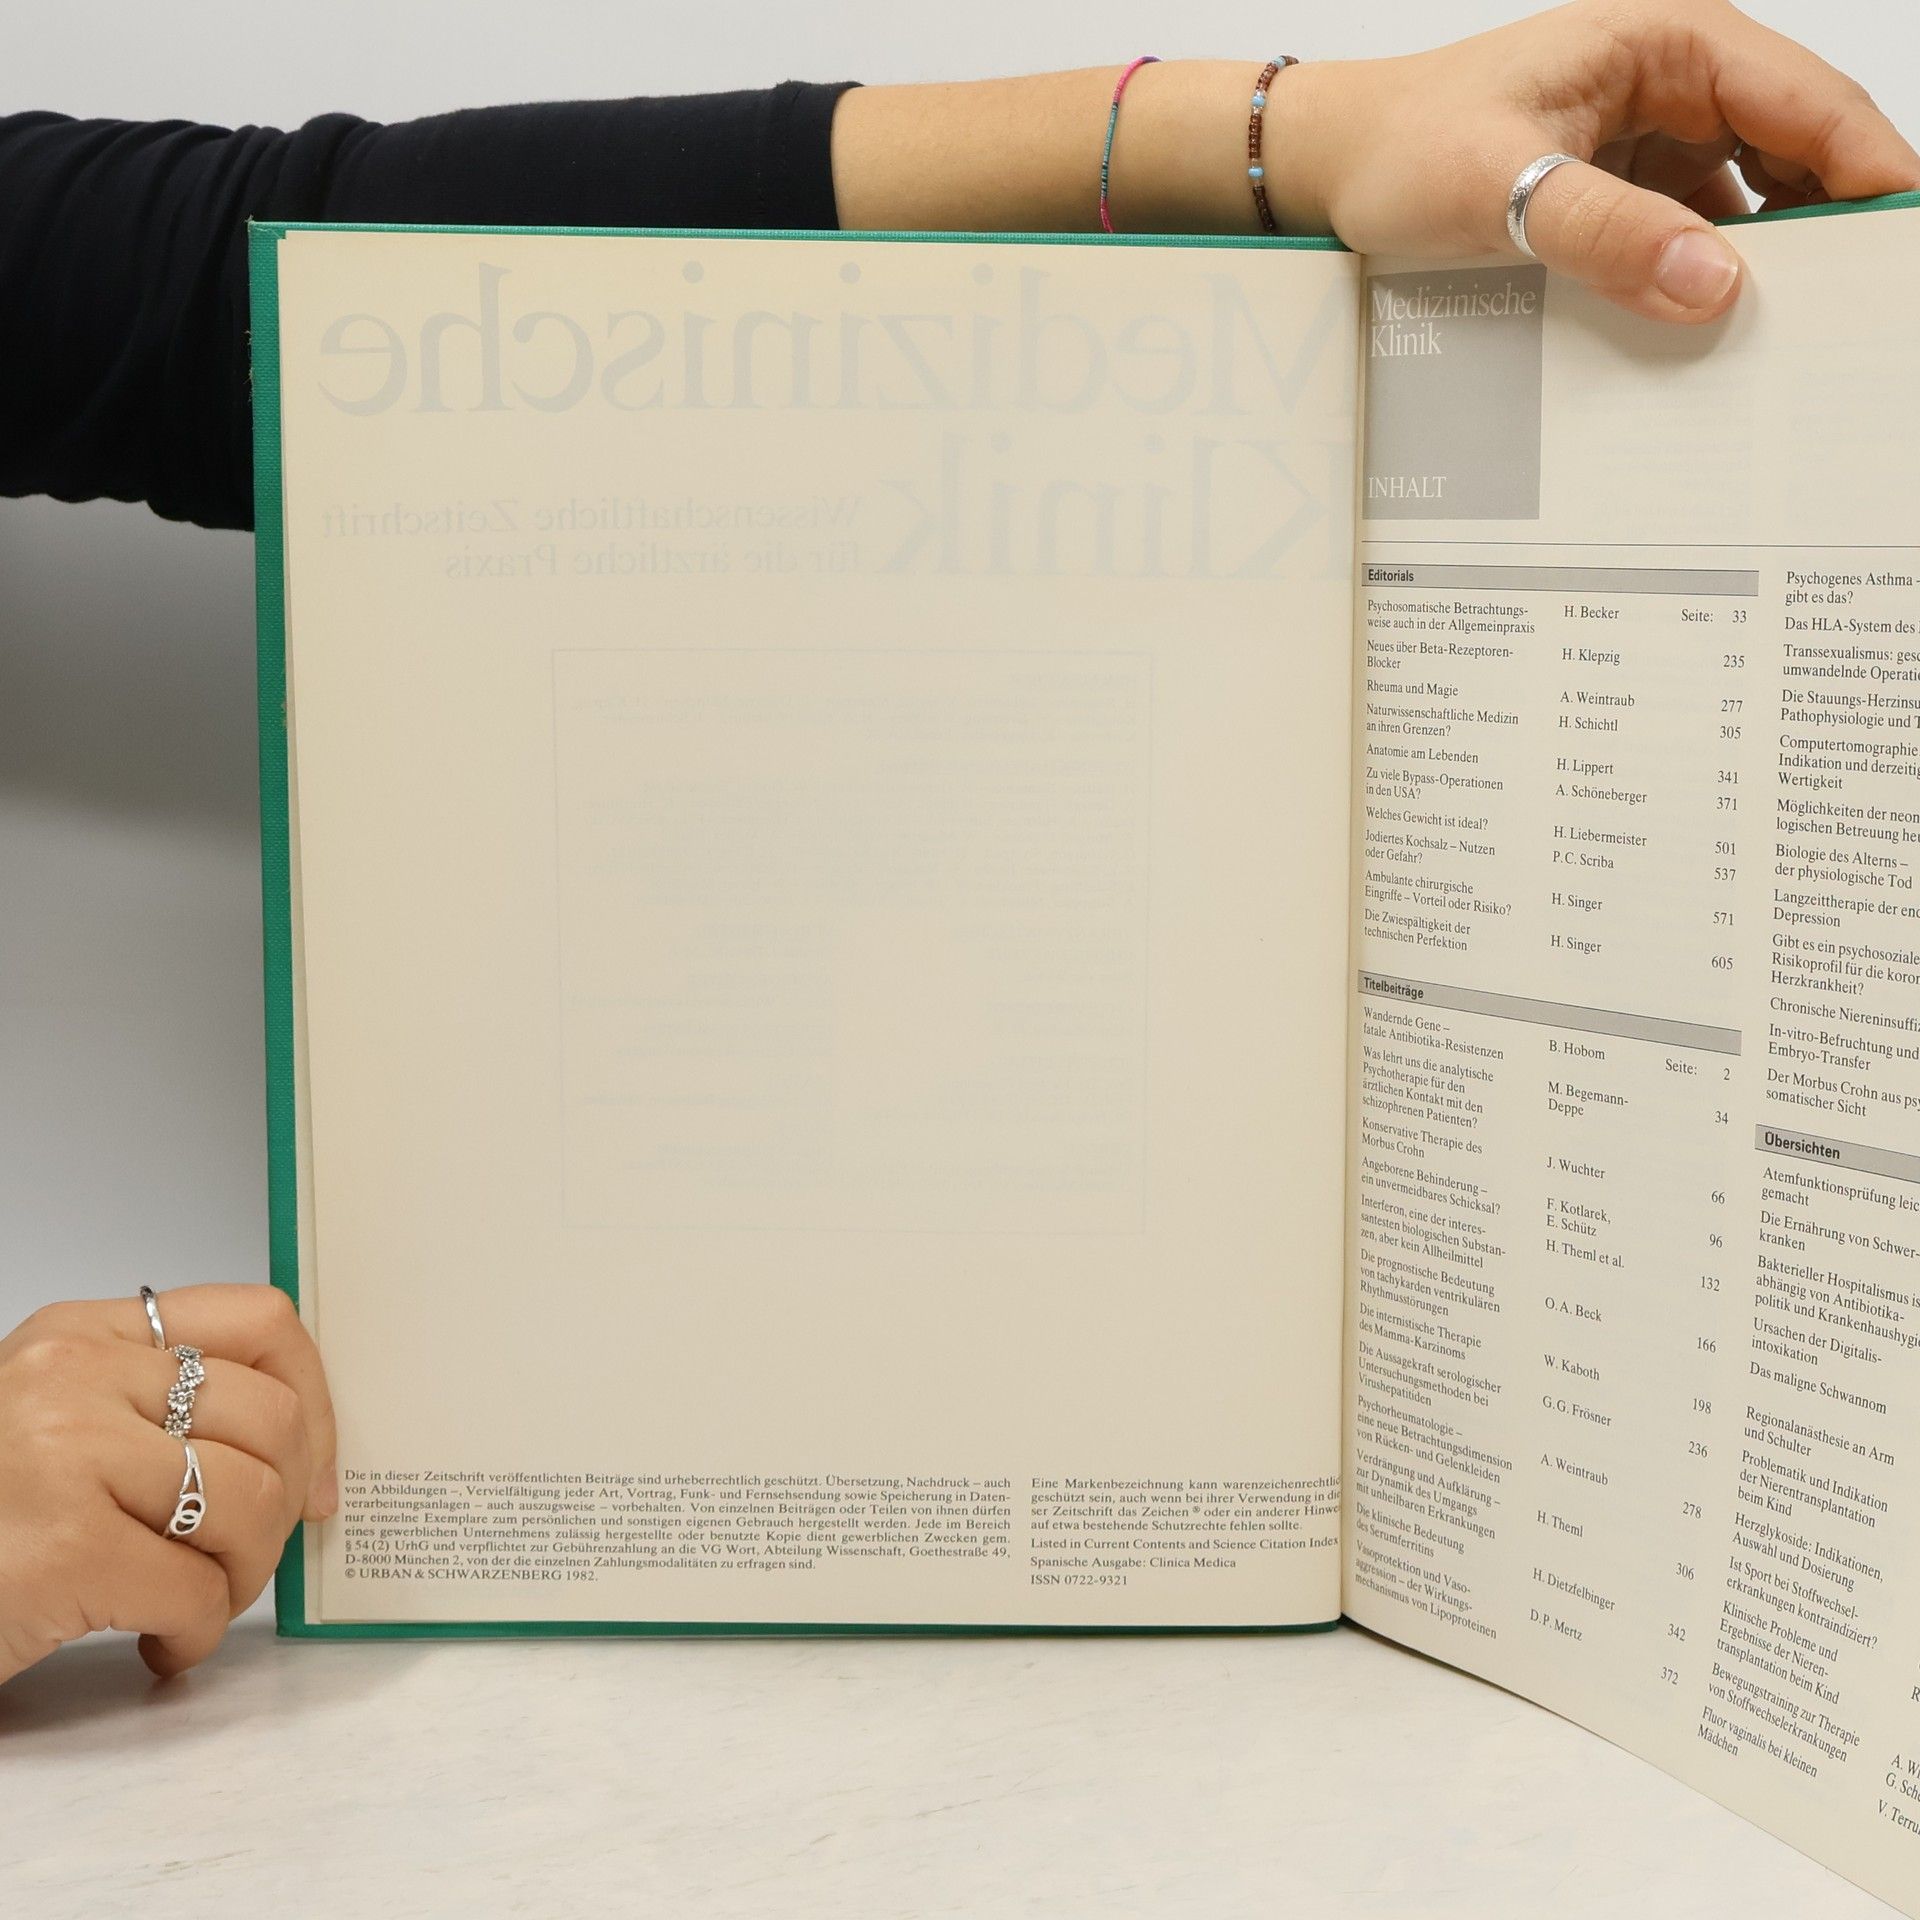 Medizinische
Klinik
Wissenschaftliche Zeitschrift
für die ärztliche Praxis
Die in dieser Zeitschrift veröffentlichten Beiträge sind urheberrechtlich geschützt. Übersetzung, Nachdruck – auch
von Abbildungen –, Vervielfältigung jeder Art, Vortrag, Funk- und Fernsehsendung sowie Speicherung in Daten-
verarbeitungsanlagen – auch auszugsweise – vorbehalten. Von einzelnen Beiträgen oder Teilen von ihnen dürfen
nur einzelne Exemplare zum persönlichen und sonstigen eigenen Gebrauch hergestellt werden. Jede im Bereich
eines gewerblichen Unternehmens zulässig hergestellte oder benutzte Kopie dient gewerblichen Zwecken gem.
§ 54 (2) UrhG und verpflichtet zur Gebührenzahlung an die VG Wort, Abteilung Wissenschaft, Goethestraße 49,
D-8000 München 2, von der die einzelnen Zahlungsmodalitäten zu erfragen sind.
© URBAN & SCHWARZENBERG 1982.
Eine Markenbezeichnung kann warenzeichenrechtlic
geschützt sein, auch wenn bei ihrer Verwendung in die
ser Zeitschrift das Zeichen ® oder ein anderer Hinwe
auf etwa bestehende Schutzrechte fehlen sollte.
Listed in Current Contents and Science Citation Index
Spanische Ausgabe: Clinica Medica
ISSN 0722-9321
Medizinische
Klinik
INHALT
Editorials
Psychosomatische Betrachtungs-
weise auch in der Allgemeinpraxis H. Becker Seite: 33
Neues über Beta-Rezeptoren-
Blocker H. Klepzig 235
Rheuma und Magie A. Weintraub 277
Naturwissenschaftliche Medizin
an ihren Grenzen? H. Schichtl 305
Anatomie am Lebenden H. Lippert 341
Zu viele Bypass-Operationen
in den USA? A. Schöneberger 371
Welches Gewicht ist ideal? H. Liebermeister 501
Jodiertes Kochsalz – Nutzen
oder Gefahr? P.C. Scriba 537
Ambulante chirurgische
Eingriffe – Vorteil oder Risiko? H. Singer 571
Die Zwiespältigkeit der
technischen Perfektion H. Singer 605
Titelbeiträge
Wandernde Gene –
fatale Antibiotika-Resistenzen B. Hobom Seite: 2
Was lehrt uns die analytische
Psychotherapie für den
ärztlichen Kontakt mit den
schizophrenen Patienten? M. Begemann-
Deppe 34
Konservative Therapie des
Morbus Crohn J. Wuchter 66
Angeborene Behinderung –
ein unvermeidbares Schicksal? F. Kotlarek,
E. Schütz 96
Interferon, eine der interes-
santesten biologischen Substan-
zen, aber kein Allheilmittel H. Theml et al. 132
Die prognostische Bedeutung
von tachykarden ventrikulären
Rhythmusstörungen O.A. Beck 166
Die internistische Therapie
des Mamma-Karzinoms W. Kaboth 198
Die Aussagekraft serologischer
Untersuchungsmethoden bei
Virushepatitiden G.G. Frösner 236
Psychorheumatologie –
eine neue Betrachtungsdimension
von Rücken- und Gelenkleiden A. Weintraub 278
Verdrängung und Aufklärung –
zur Dynamik des Umgangs
mit unheilbaren Erkrankungen H. Theml 306
Die klinische Bedeutung
des Serumferritins H. Dietzfelbinger 342
Vasoprotektion und Vaso-
aggression – der Wirkungs-
mechanismus von Lipoproteinen D.P. Mertz 372
Psychogenes Asthma –
gibt es das?
Das HLA-System des
Transsexualismus: gesc
umwandelnde Operatio
Die Stauungs-Herzinsu
Pathophysiologie und T
Computertomographie
Indikation und derzeitig
Wertigkeit
Möglichkeiten der neon
logischen Betreuung heu
Biologie des Alterns –
der physiologische Tod
Langzeittherapie der end
Depression
Gibt es ein psychosoziale
Risikoprofil für die koron
Herzkrankheit?
Chronische Niereninsuffiz
In-vitro-Befruchtung und
Embryo-Transfer
Der Morbus Crohn aus psy
somatischer Sicht
Übersichten
Atemfunktionsprüfung leic
gemacht
Die Ernährung von Schwer-
kranken
Bakterieller Hospitalismus is
abhängig von Antibiotika-
politik und Krankenhaushygie
Ursachen der Digitalis-
intoxikation
Das maligne Schwannom
Regionalanästhesie an Arm
und Schulter
Problematik und Indikation
der Nierentransplantation
beim Kind
Herzglykoside: Indikationen,
Auswahl und Dosierung
Ist Sport bei Stoffwechsel-
erkrankungen kontraindiziert?
Klinische Probleme und
Ergebnisse der Nieren-
transplantation beim Kind
Bewegungstraining zur Therapie
von Stoffwechselerkrankungen
Fluor vaginalis bei kleinen
Mädchen
A. Wi
G. Sche
V. Terru